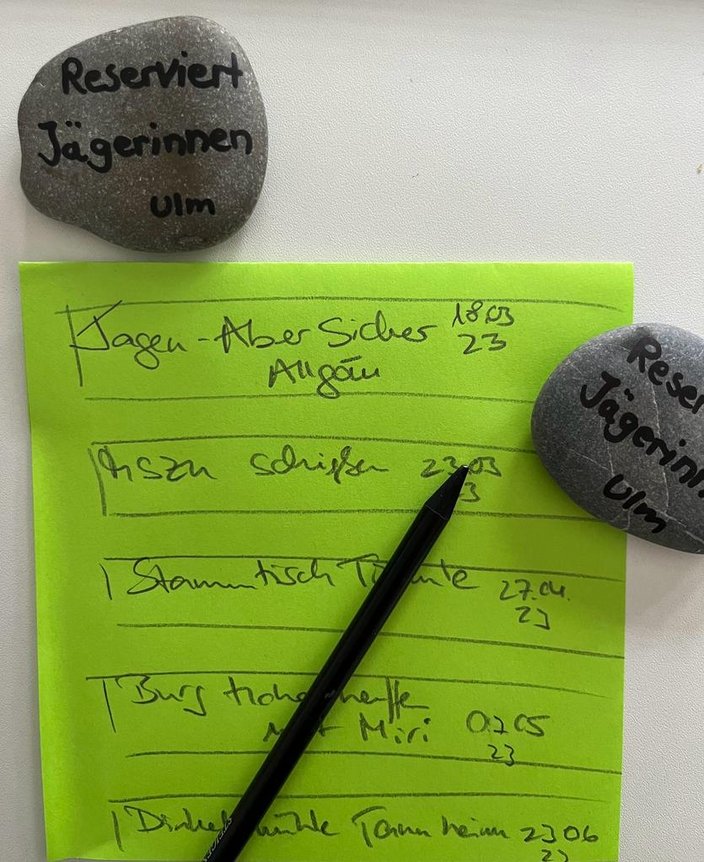 Reserviert
Jägerinnen
Ulm
Jagen - Aber Sicher 18.03
Allgäu 23
schießen 23.03
23
Stammtisch 27.04.
23
Burg
mit Miri 07 05
23
Tannheim 23 06
23
Reser
Jägerinn
Ulm